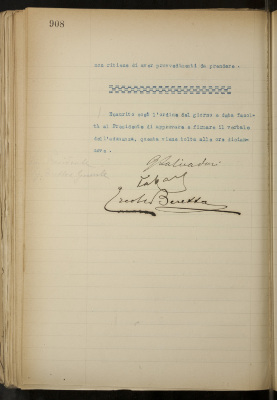 908
non ritiene di aver provvedimenti da prendere.
Esaurito così l'ordine del giorno e data facol-
tà al Presidente di approvare e firmare il verbale
dell'adunanza, questa viene tolta alle ore dician-
nove.
Ercole Beretta